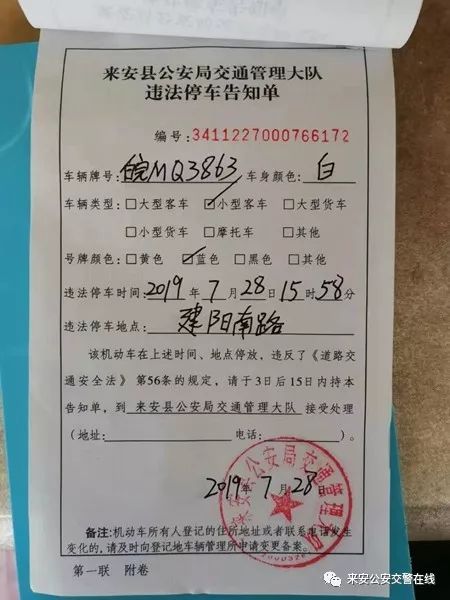 来安县公安局交通管理大队
违法停车告知单
编号:3411227000766172
车辆牌号:皖MQ3863 车身颜色:白
车辆类型:□大型客车 ☑小型客车 □大型货车
□小型货车 □摩托车 □其他
号牌颜色:□黄色 ☑蓝色 □黑色 □其他
违法停车时间:2019年7月28日15时58分
违法停车地点:建阳南路
该机动车在上述时间、地点停放,违反了《道路交
通安全法》第56条的规定,请于3日后15日内持本
告知单,到来安县公安局交通管理大队接受处理
(地址: 电话: )。
来安县公安局交通管理大队
2019年7月28日
备注:机动车所有人登记的住所地址或者联系电话发生
变化的,请及时向登记地车辆管理所申请变更备案。
第一联 附卷
来安公安交警在线